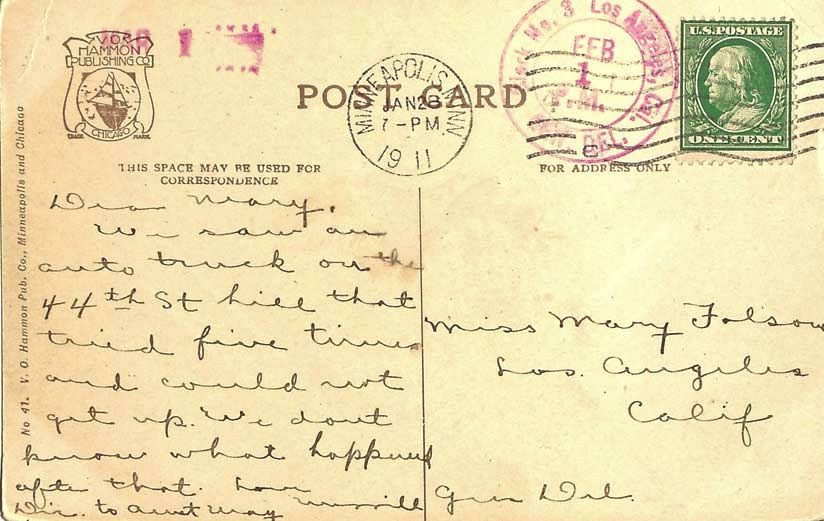 V.O.
HAMMON
PUBLISHING CO
CHICAGO
TRADE MARK
MAR 1
POST CARD
MINNEAPOLIS, MINN
JAN 28
7-PM
1911
Clerk No. 3 Los Angeles, Cal.
FEB
1
P.M.
GEN. DEL.
U.S. POSTAGE
ONE CENT
THIS SPACE MAY BE USED FOR
CORRESPONDENCE
FOR ADDRESS ONLY
No 41. V. O. Hammon Pub. Co., Minneapolis and Chicago
Dear Mary,
We saw an
auto truck on the
44th St hill that
tried five times
and could not
get up. We dont
know what happened
after that. Love
to Aunt May Merrill
Miss Mary Folsom
Los Angeles
Calif
Gen Del.